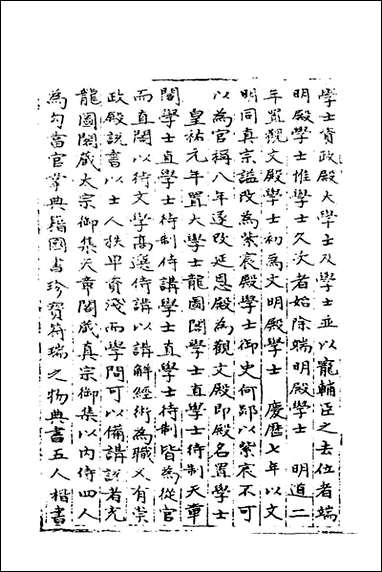 學士資政殿大學士及學士並以寵輔臣之去位者端
明殿學士惟學士久次者始除端明殿學士　明道二
年置觀文殿學士初為文明殿學士　慶曆七年以文
明同真宗謚改為紫宸殿學士御史何郯以紫宸不可
以為官稱八年遂改延恩殿為觀文殿即殿名置學士
皇祐元年置大學士龍圖閣學士直學士待制天章
閣學士直學士待制侍講學士直學士待制皆為從官
而直閣以待文學高選侍講以講解經術為職又有崇
政殿說書以士人扶卑資淺而學問可以備講說者充
龍圖閣蔵太宗御集天章閣蔵真宗御集以內侍四人
為勾當官掌典籍圖書珍寶符瑞之物典書五人楷書